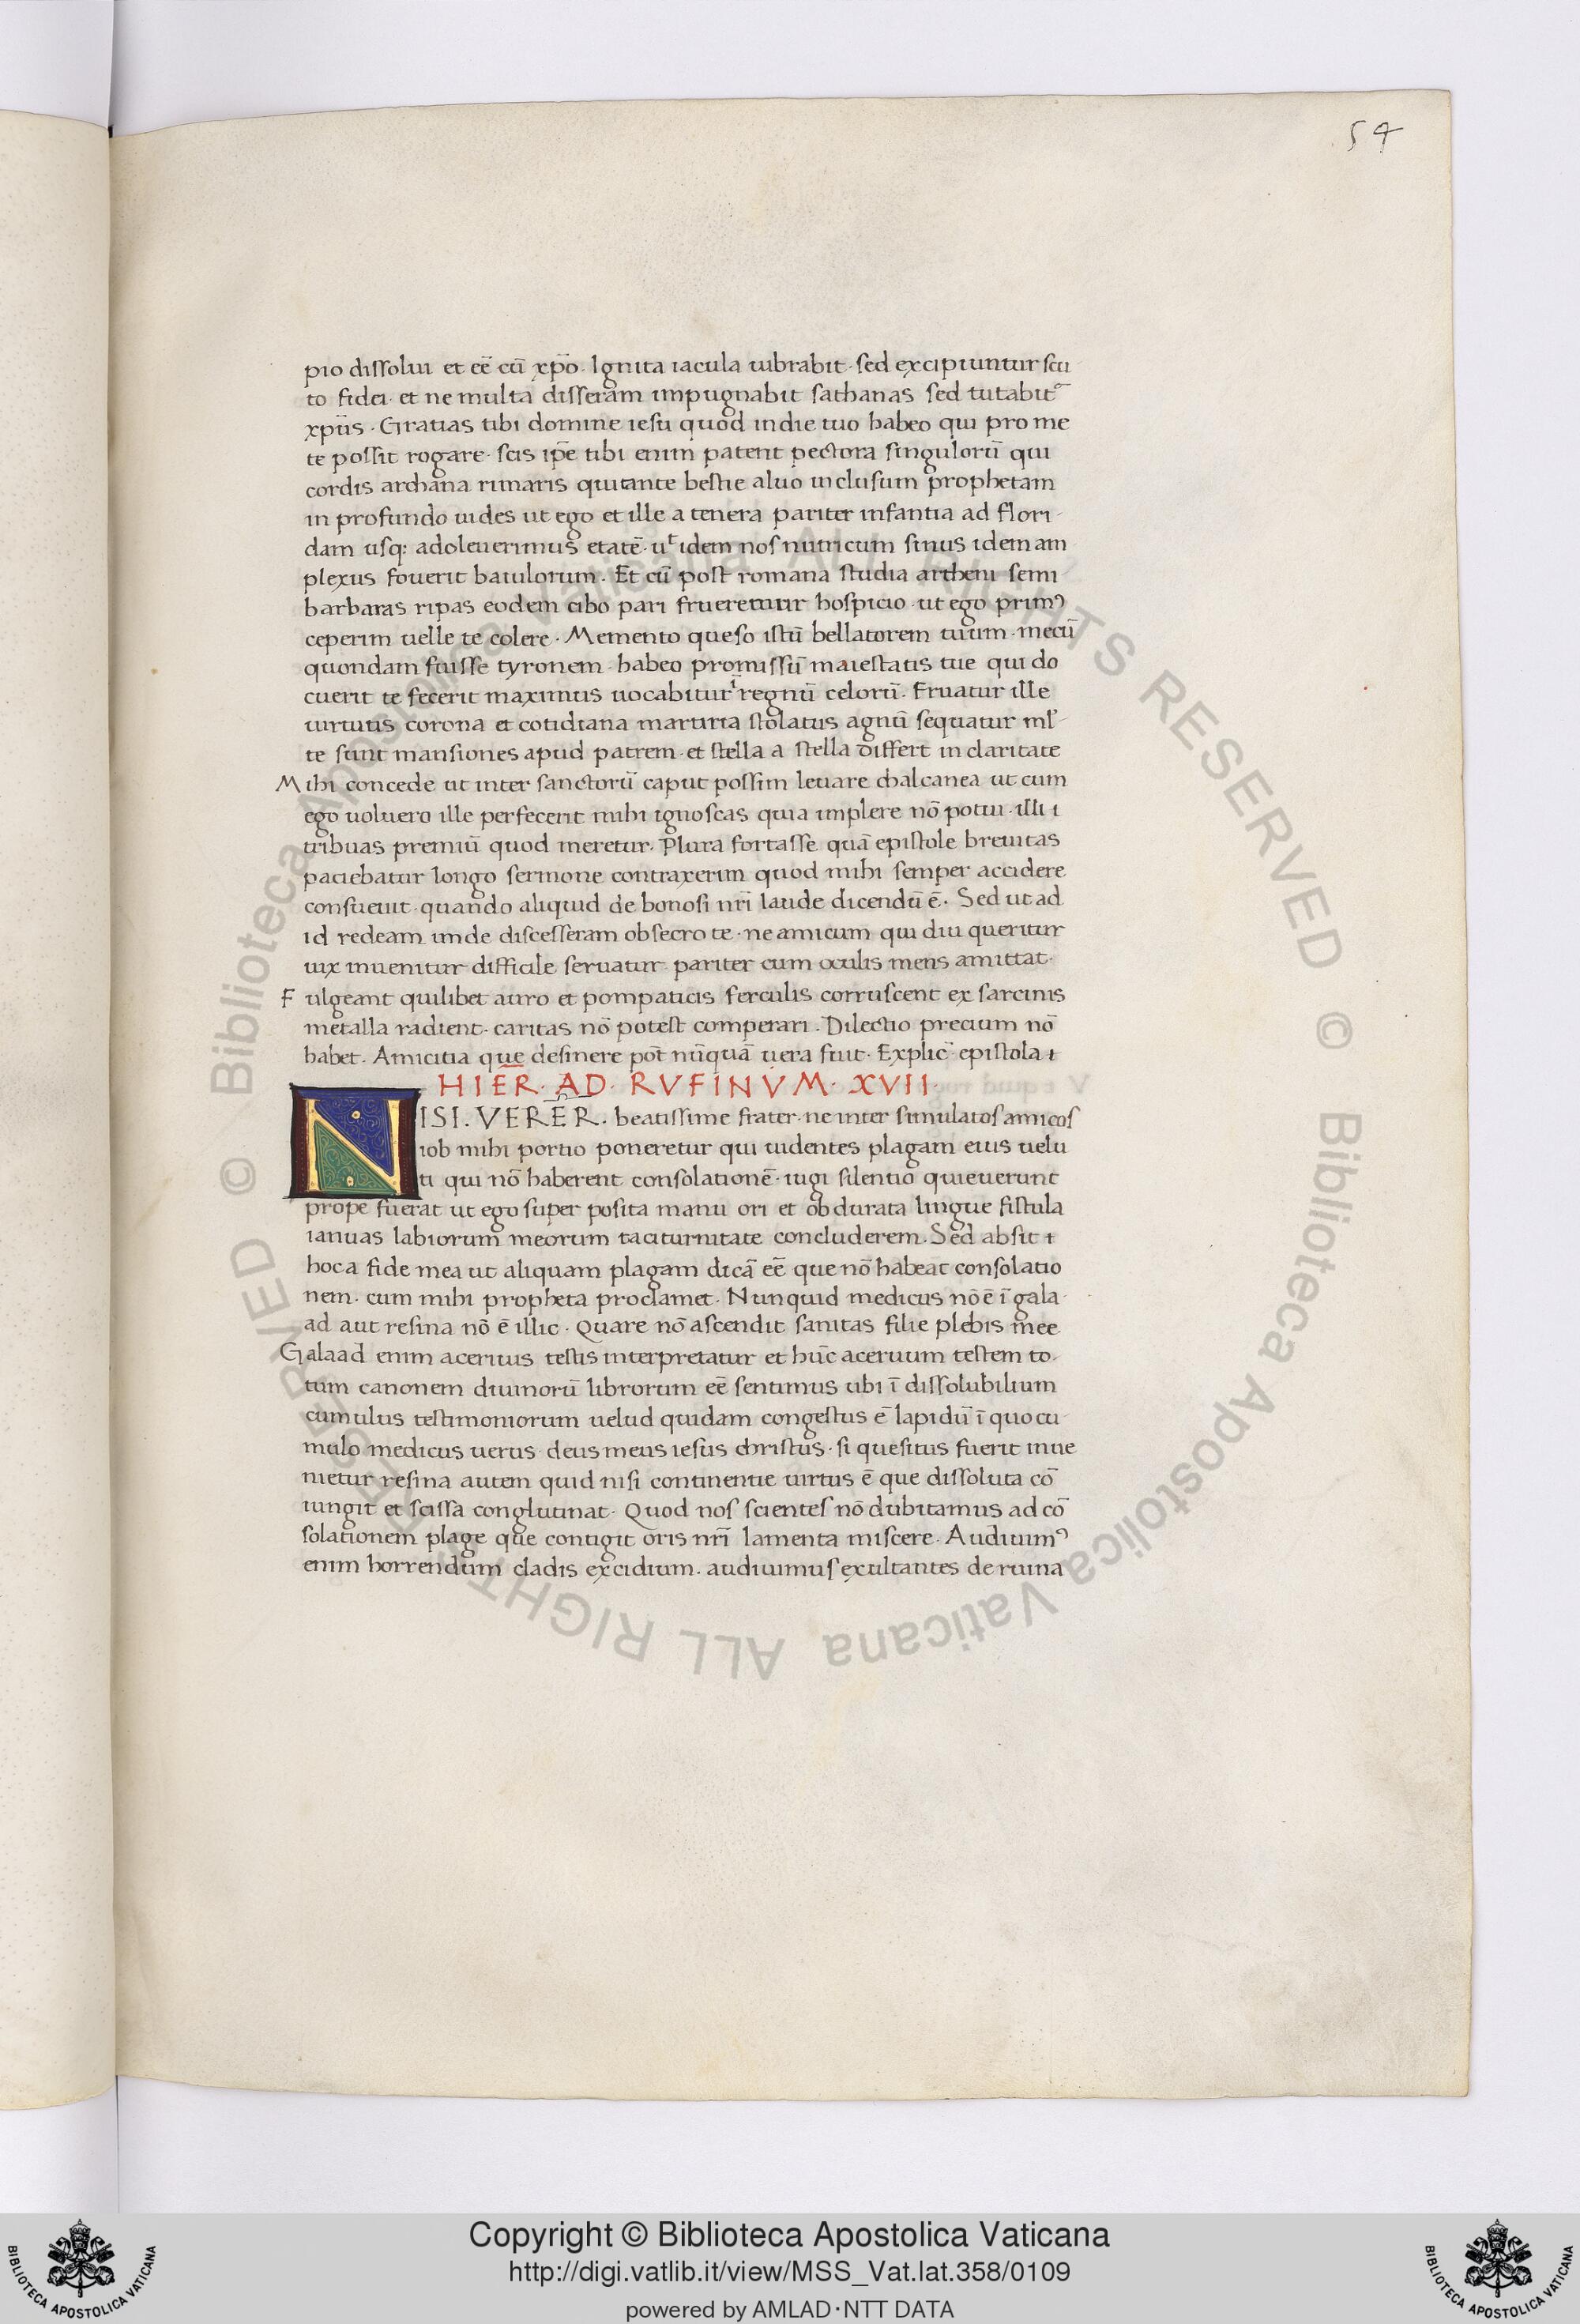 54
pio dissolui et eē cū xp̄o. Ignita iacula uibrabit · sed excipiuntur scu
to fidei · et ne multa disseram impugnabit sathanas sed tutabit᷑
xp̄us · Gratias tibi domine iesu quod in die tuo habeo qui pro me
te possit rogare · scis ip̄e tibi enim patent pectora singulorū qui
cordis archana rimaris qui tante bestie aluo inclusum prophetam
in profundo uides ut ego et ille a tenera pariter infantia ad flori
dam usq; adoleuerimus etatē · ut idem nos nutricum sinus idem am
plexus fouerit baiulorum · Et cū post romana studia ad rheni semi
barbaras ripas eodem cibo pari frueremur hospicio · ut ego primꝰ
ceperim uelle te colere · Memento queso istū bellatorem tuum · mecū
quondam fuisse tyronem · habeo promissū maiestatis tue qui do
cuerit te fecerit maximus uocabitur ī regnū celorū. Fruatur ille
uirtutis corona et cotidiana martiria stolatus agnū sequatur ml̄
te sunt mansiones apud patrem · et stella a stella differt in claritate
Mihi concede ut inter sanctorū caput possim leuare chalcanea ut cum
ego uoluero ille perfecerit mihi ignoscas quia implere nō potui · illi
tribuas premiū quod meretur · Plura fortasse quā epistole breuitas
paciebatur longo sermone contraxerim quod mihi semper accidere
consueuit · quando aliquid de bonosi nr̄i laude dicendū ē · Sed ut ad
id redeam unde discesseram obsecro te · ne amicum qui diu queritur
uix inuenitur difficile seruatur pariter cum oculis mens amittat ·
Fulgeant quilibet auro et pompaticis ferculis corruscent ex sarcinis
metalla radient · caritas nō potest comperari · Dilectio precium nō
habet · Amicitia que desinere pōt nūquā uera fuit · Explic̄ epistola
HIER · AD · RVFINVM · XVII ·
NISI · VERER · beatissime frater · ne inter simulatos amicos
iob mihi portio poneretur qui uidentes plagam eius uelu
ti qui nō haberent consolationē · iugi silentio quieuerunt
prope fuerat ut ego super posita manu ori et obdurata lingue fistula
ianuas labiorum meorum taciturnitate concluderem · Sed absit
hoc a fide mea ut aliquam plagam dicā eē que nō habeat consolatio
nem · cum mihi propheta proclamet · Nunquid medicus nō ē ī gala
ad aut resina nō ē illic · Quare nō ascendit sanitas filie plebis mee
Galaad enim aceruus testis interpretatur et hūc aceruum testem to
tum canonem diuinorū librorum eē sentimus ubi ī dissolubilium
cumulus testimoniorum uelud quidam congestus ē lapidū ī quo cu
mulo medicus uerus deus meus iesus christus · si quesitus fuerit inue
nietur resina autem quid nisi continentie uirtus ē que dissoluta cō
iungit et scissa conglutinat · Quod nos scientes nō dubitamus ad cō
solationem plage que contigit oris nr̄i lamenta miscere · Audiuimꝰ
enim horrendum cladis excidium · audiuimus exultantes de ruina
© Biblioteca Apostolica Vaticana ALL RIGHTS RESERVED © Biblioteca Apostolica Vaticana ALL RIGHTS RESERVED
BIBLIOTECA APOSTOLICA VATICANA
Copyright © Biblioteca Apostolica Vaticana
http://digi.vatlib.it/view/MSS_Vat.lat.358/0109
powered by AMLAD·NTT DATA
BIBLIOTECA APOSTOLICA VATICANA